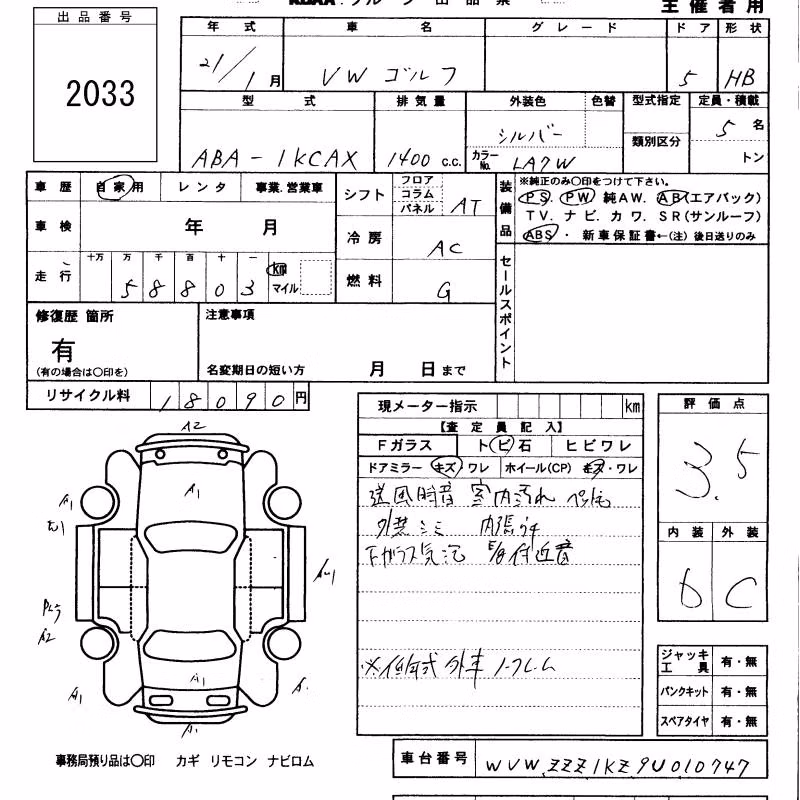 出品番号
2033
主催者用
年式 車名 グレード ドア 形状
21/1月 VW ゴルフ 5 HB
型式 排気量 外装色 色替 型式指定 定員・積載
ABA-1KCAX 1400 c.c. シルバー カラーNo. LA7W 類別区分 5名 トン
車歴 自家用 レンタ 事業.営業車
シフト フロア コラム パネル AT
装備品 ※純正のみ〇印をつけて下さい。
PS. PW 純AW. AB(エアバック)
TV. ナビ. カワ. SR(サンルーフ)
ABS・ 新車保証書←(注)後日送りのみ
車検 年 月
冷房 AC
走行 十万 万 千 百 十 一
58803 km マイル
燃料 G
セールスポイント
修復歴 箇所 注意事項
有
(有の場合は〇印を) 名変期日の短い方 月 日まで
リサイクル料 18090円
現メーター指示 km
評価点
3.5
【査定員記入】
Fガラス トビ石 ヒビワレ
ドアミラー キズ ワレ ホイール(CP) キズ・ワレ
送風時音 室内汚れ
外装シミ
Fガラス気泡 付近音
内装 外装
D C
A2
A1
A1
A1
A2
A1
A1
A1
ジャッキ工具 有・無
パンクキット 有・無
スペアタイヤ 有・無
事務局預り品は〇印 カギ リモコン ナビロム
車台番号 WVWZZZ1KZ9U010747